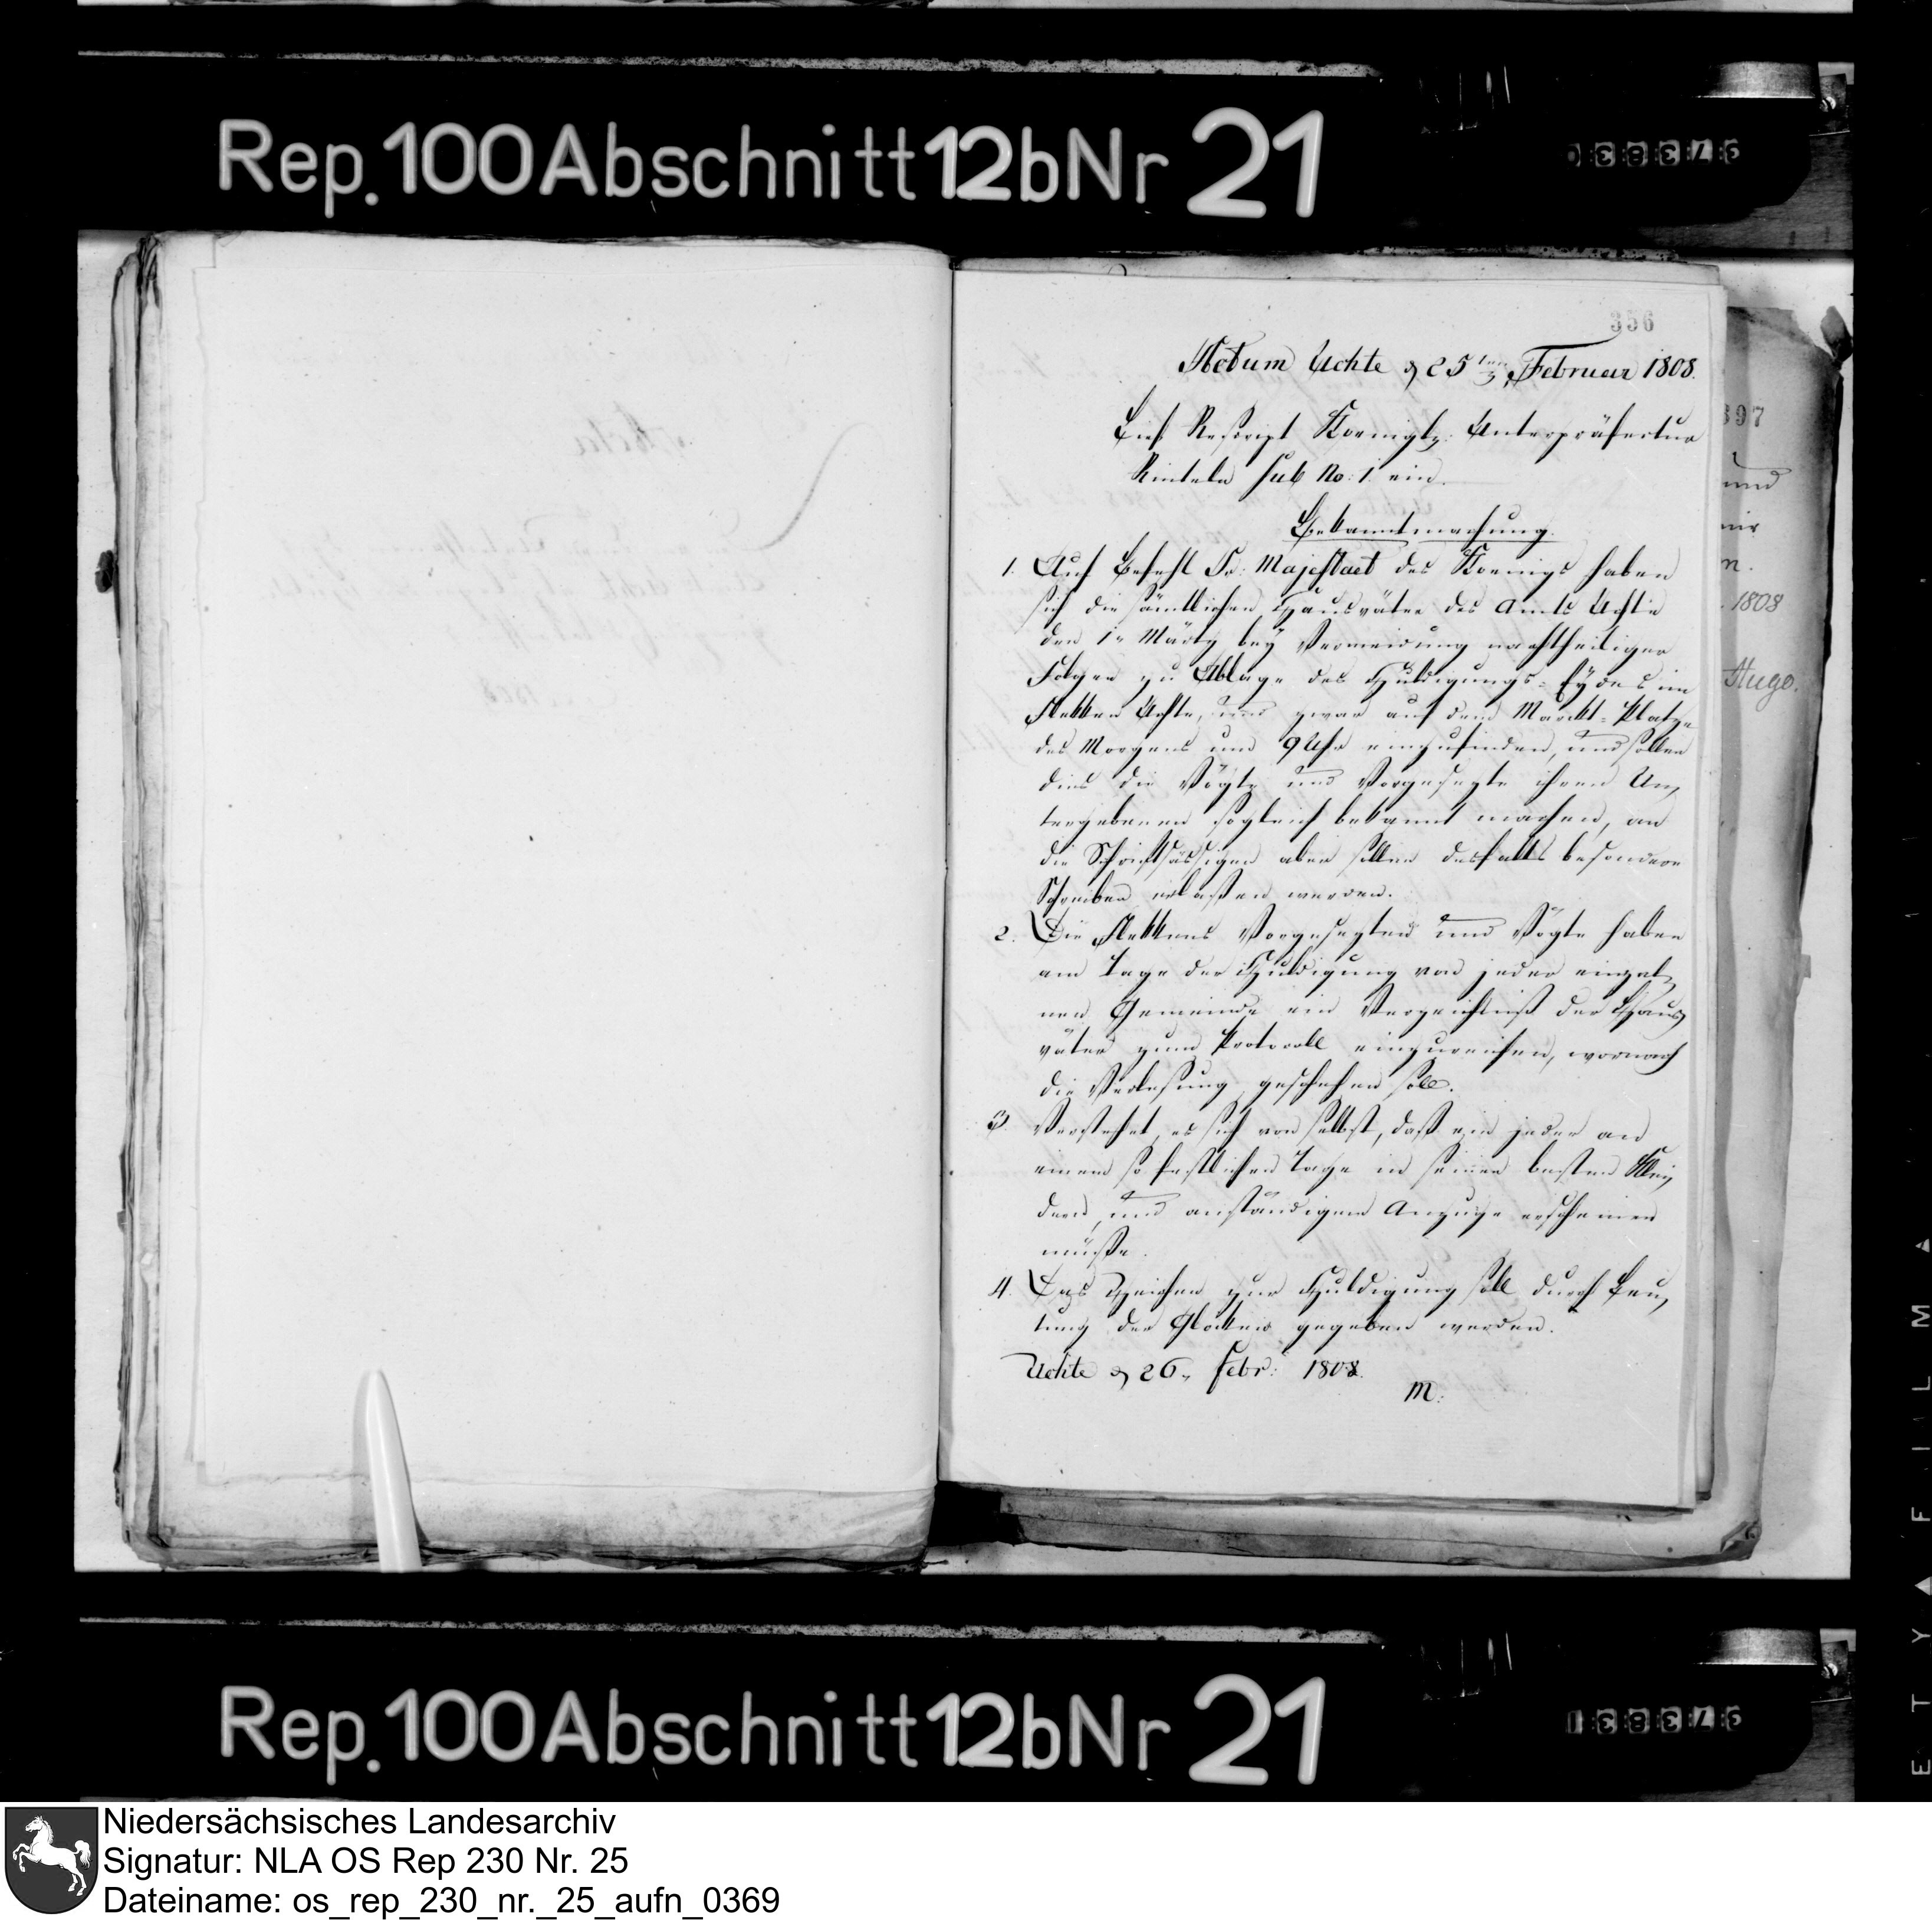 Rep.100Abschnitt12bNr 21
356
Actum Uchte d 25ten Februar 1808.
Lief Rescript Koenigly: Unterpräfectur
Rinteln sub No: 1. ein.
Bekanntmachung.
1. Auf Befehl Sr: Majestaet des Koenigs haben
sich die sämtlichen Hausväter des Amts Uchte
den 1n Märtz bey Vermeidung nachtheiliger
Folgen zu Ablage des Huldigungs-Eydes im
Flekken Uchte, und zwar auf dem Markt-Platze
des Morgens um 9 Uhr einzufinden, und sollen
dies die Vögte und Vorgesezte ihren Un,
tergebenen sogleich bekannt machen, an
die Schriftsässigen aber sollen desfalls besondere
Schreiben erlaßen werden.
2. Die Flekkens Vorgesezten und Vögte haben
am Tage der Huldigung von jeder einzel,
nen Gemeinde ein Verzeichniß der Haus,
väter zum Protocoll einzureichen, wornach
die Verlesung geschehen soll.
3. Verstehet es sich von selbst, daß ein jeder an
einem so festlichen Tage in seinen besten Klei,
dern und anständigem Anzuge erscheinen
müße.
4. Das Zeichen zur Huldigung soll durch Leu,
tung der Glokken gegeben werden.
Uchte d 26. Febr: 1808.
M.
397
und
mir
n.
1808
Hugo.
Rep.100Abschnitt12bNr 21
Niedersächsisches Landesarchiv
Signatur: NLA OS Rep 230 Nr. 25
Dateiname: os_rep_230_nr._25_aufn_0369